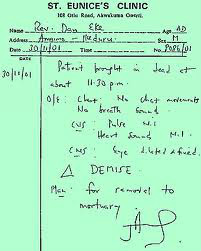 ST. EUNICE'S CLINIC
108 Okio Road, Akwakuma Owerri.
Name Rev. Dan Eke Age AD
Address Amaimo - Ikeduru Sex M
Date 30/11/01 No. 8086/01
30/11/01 Patient brought in dead at
about 11:30 p.m.
O/E: Chest: No chest movements
No breath sound.
CVS: Pulse Nil
Heart Sound Nil
CNS: Eye dilated & fixed.
Δ DEMISE.
Plan: for removal to
mortuary.